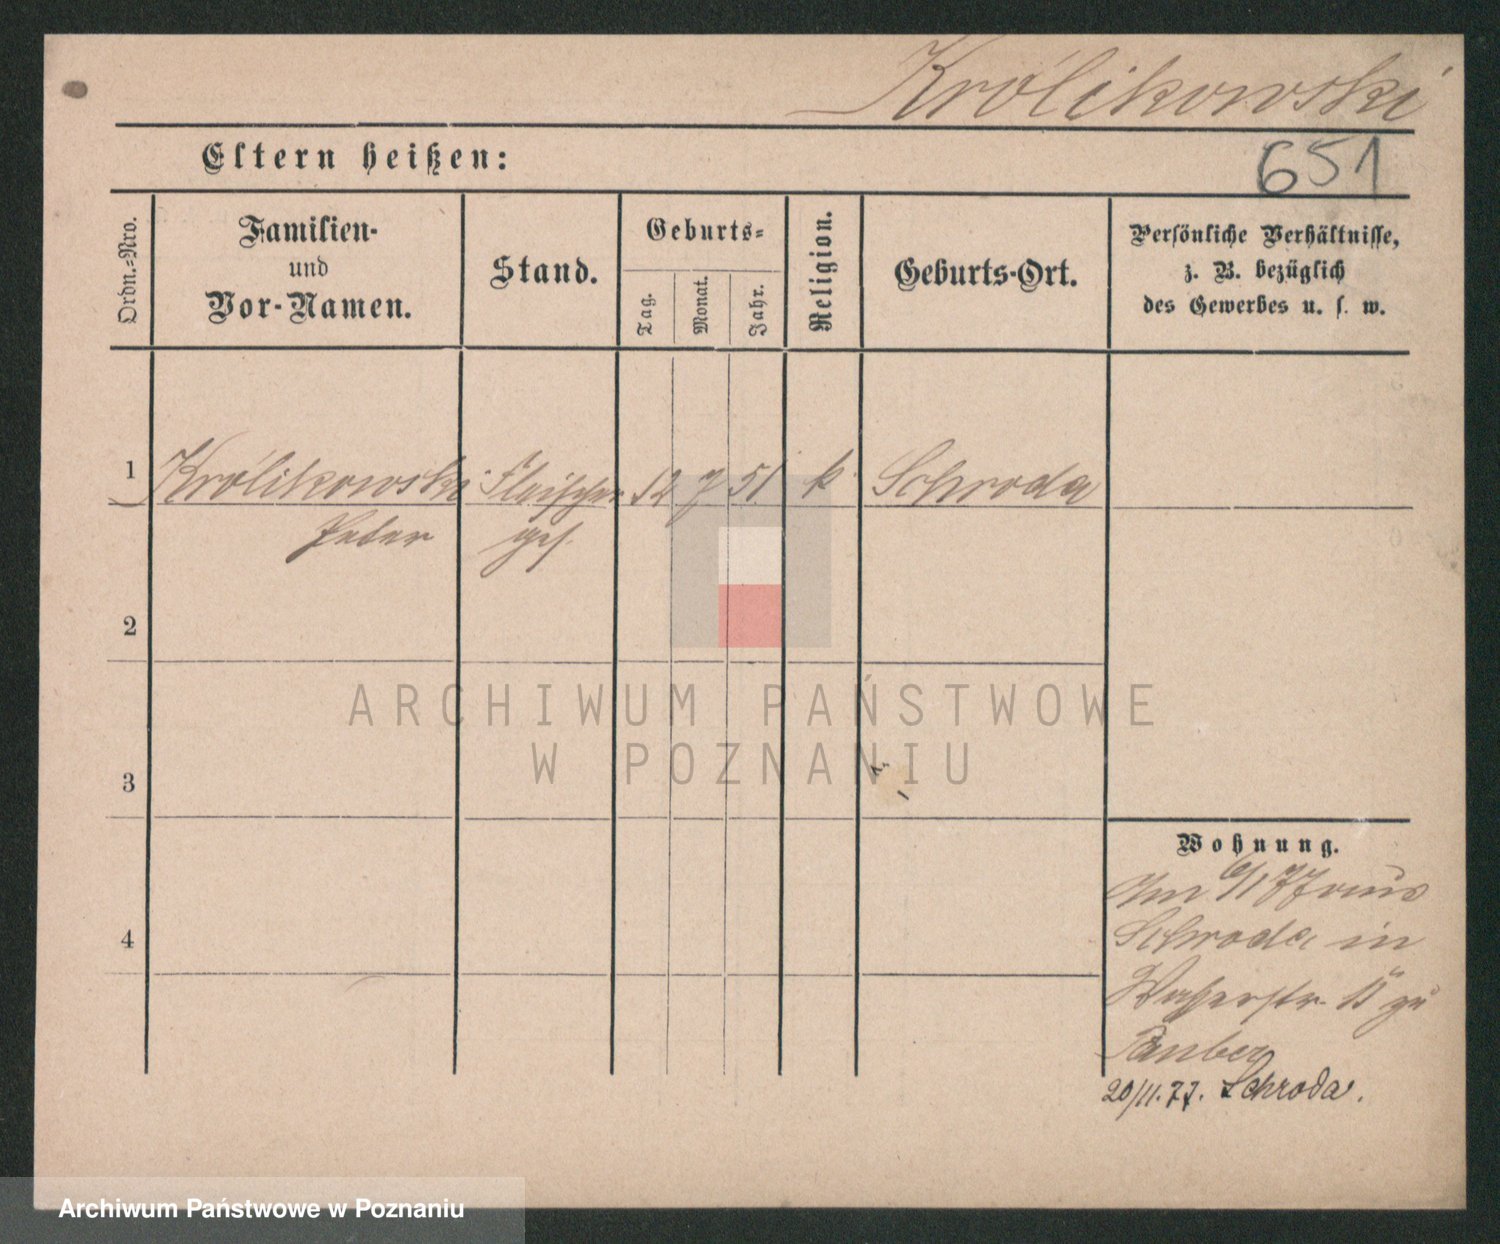 Królikowski
Eltern heißen:
651
Ordn.-Nro.
Familien-
und
Vor-Namen.
Stand.
Geburts-
Tag.
Monat.
Jahr.
Religion.
Geburts-Ort.
Persönliche Verhältnisse,
z. B. bezüglich
des Gewerbes u. s. w.
1 Królikowski Fleischer 12 7 51 k. Schroda
Peter ges.
2
3
4
Wohnung.
Am 6/1 77 aus
Schroda in
Wasserstr. 15 zu
20/11. 77. Schroda.
ARCHIWUM PAŃSTWOWE
W POZNANIU
Archiwum Państwowe w Poznaniu